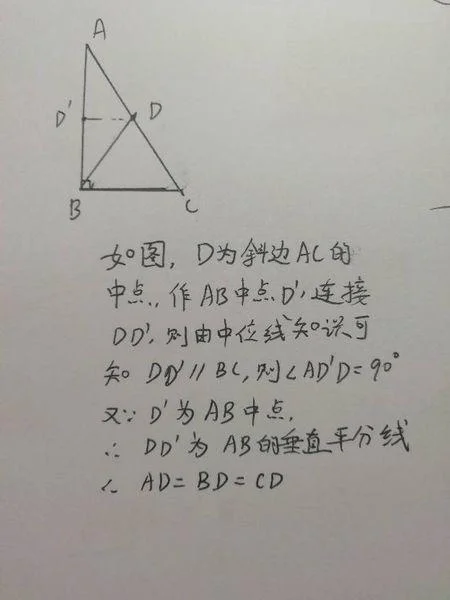 A
D'
D
B
C
如图, D为斜边AC的
中点, 作AB中点D', 连接
DD', 则由中位线知识可
知 DD'∥BC, 则∠AD'D=90°
又∵ D'为AB中点,
∴ DD'为AB的垂直平分线
∴ AD=BD=CD